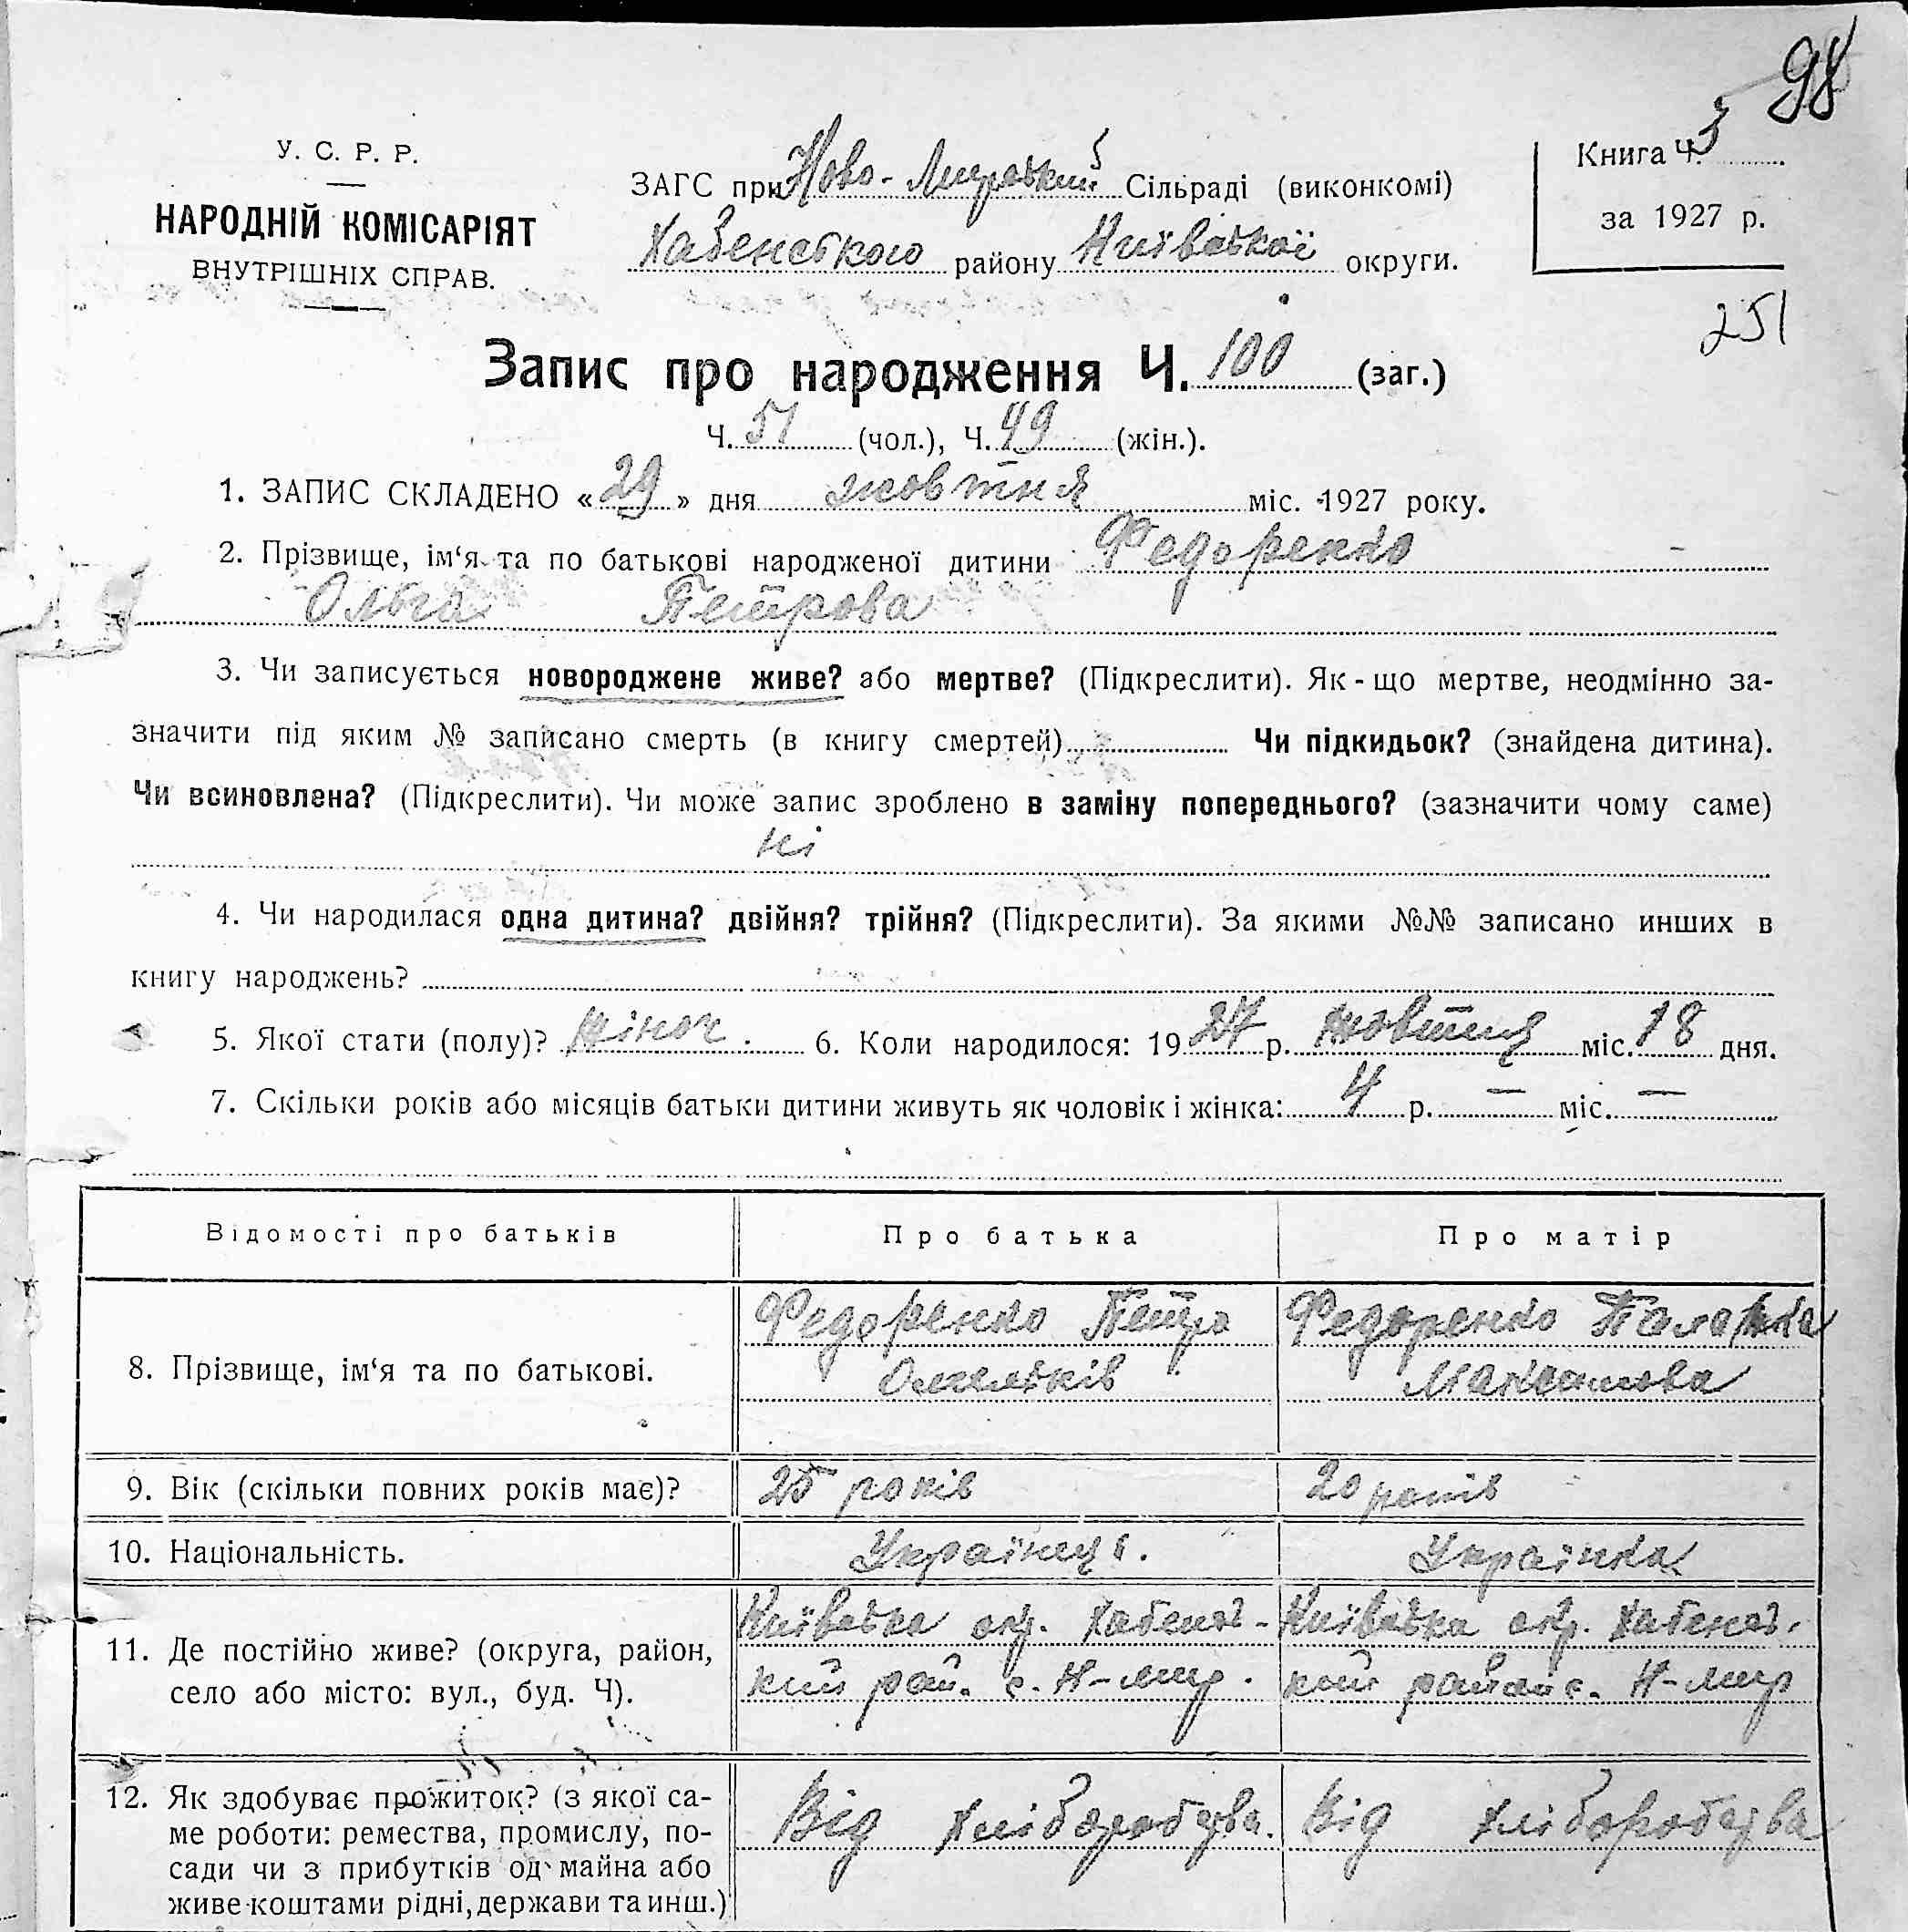 98
У. С. Р. Р.
НАРОДНІЙ КОМІСАРІЯТ
ВНУТРІШНІХ СПРАВ.
ЗАГС при Ново-Мирський Сільраді (виконкомі)
Хабенського району Київської округи.
Книга Ч. 3
за 1927 р.
251
Запис про народження Ч. 100 (заг.)
Ч. 51 (чол.), Ч. 49 (жін.).
1. ЗАПИС СКЛАДЕНО «29» дня жовтня міс. 1927 року.
2. Прізвище, ім‘я та по батькові народженої дитини Федоренко
Ольга Петрова
3. Чи записується новороджене живе? або мертве? (Підкреслити). Як-що мертве, неодмінно за-
значити під яким № записано смерть (в книгу смертей) Чи підкидьок? (знайдена дитина).
Чи всиновлена? (Підкреслити). Чи може запис зроблено в заміну попереднього? (зазначити чому саме)
ні
4. Чи народилася одна дитина? двійня? трійня? (Підкреслити). За якими №№ записано инших в
книгу народжень?
5. Якої стати (полу)? жіноч. 6. Коли народилося: 1927 р. жовтня міс. 18 дня.
7. Скільки років або місяців батьки дитини живуть як чоловік і жінка: 4 р. — міс. —
Відомості про батьків Про батька Про матір
8. Прізвище, ім‘я та по батькові.
Федоренко Петро
Омельків
Федоренко Палажка
Максимова
9. Вік (скільки повних років має)? 25 років 20 років
10. Національність. Українець. Українка
11. Де постійно живе? (округа, район,
село або місто: вул., буд. Ч).
Київська окр. Хабенсь-
кий рай. с. Н-мир.
Київська окр. Хабенсь-
кий район с. Н-мир
12. Як здобуває прожиток? (з якої са-
ме роботи: ремества, промислу, по-
сади чи з прибутків од майна або
живе коштами рідні, держави та инш.)
Від хліборобства.
Від хліборобства